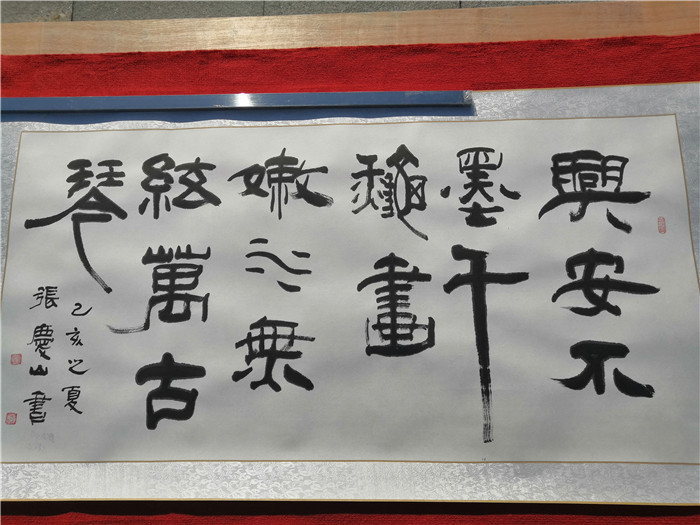 興安不
墨千
穐畫
嫩水無
絃萬古
琴
己亥之夏
張慶山書